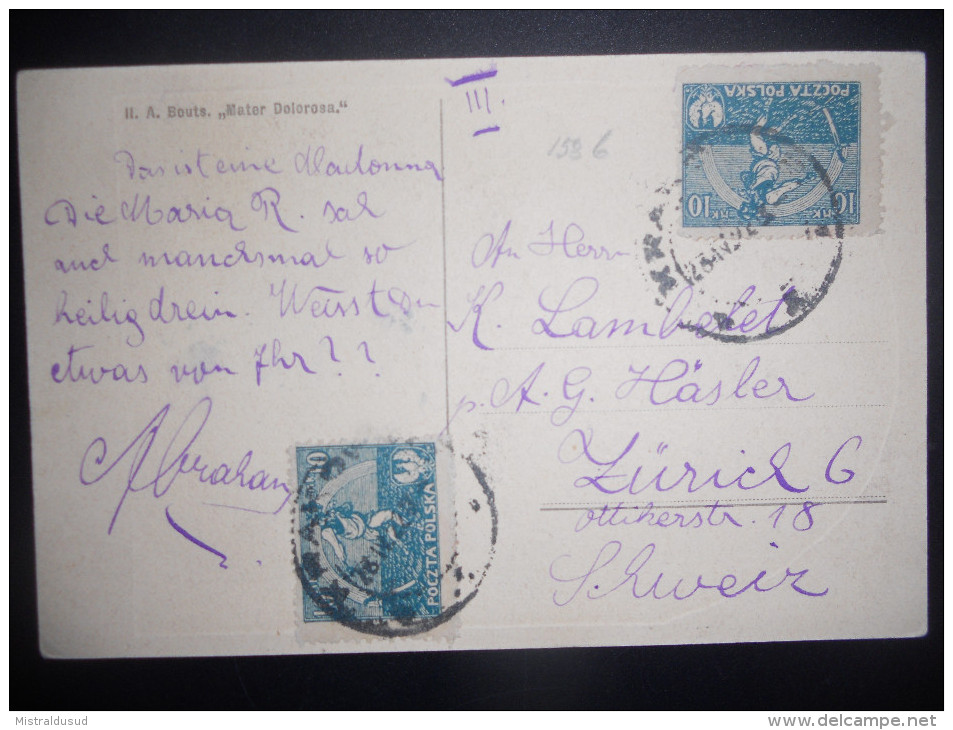 II. A. Bouts. „Mater Dolorosa."
Das ist eine Madonna
Die Maria R. sah
auch manchsmal so
heilig drein. Weisst Du
etwas von Ihr??
Abraham
III.
158 6
An Herrn
K. Lambelet
p. A. G. Häsler
Zürich 6
Ottikerstr. 18
Schweiz
POCZTA POLSKA
10 MK
10 MK
POCZTA POLSKA
10
10
Mistraldusud
http://www.delcampe.net